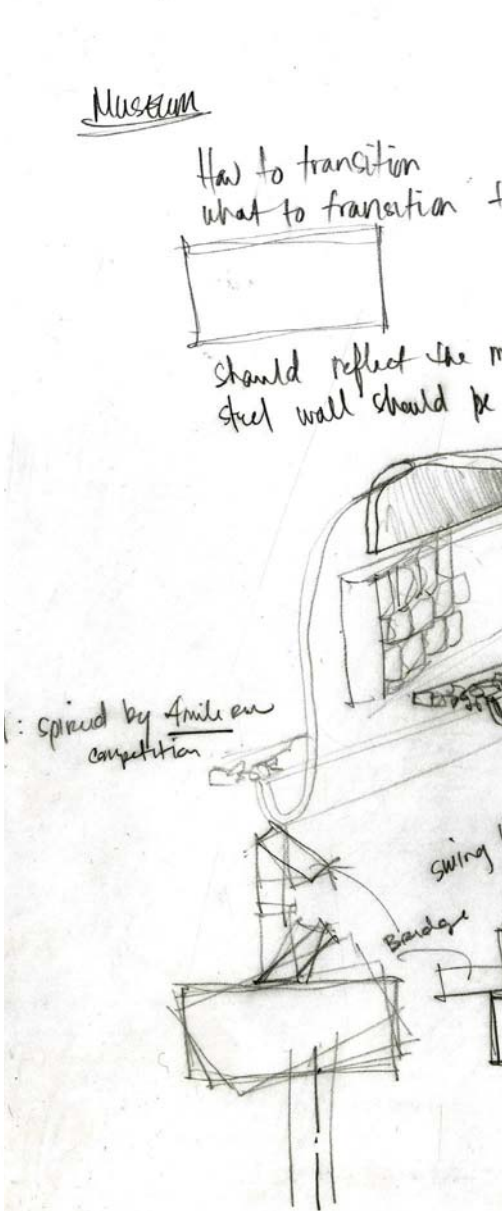 Museum
How to transition
what to transition t
should reflect the m
steel wall should be
: spired by 4mile run
competition
swing
Bridge